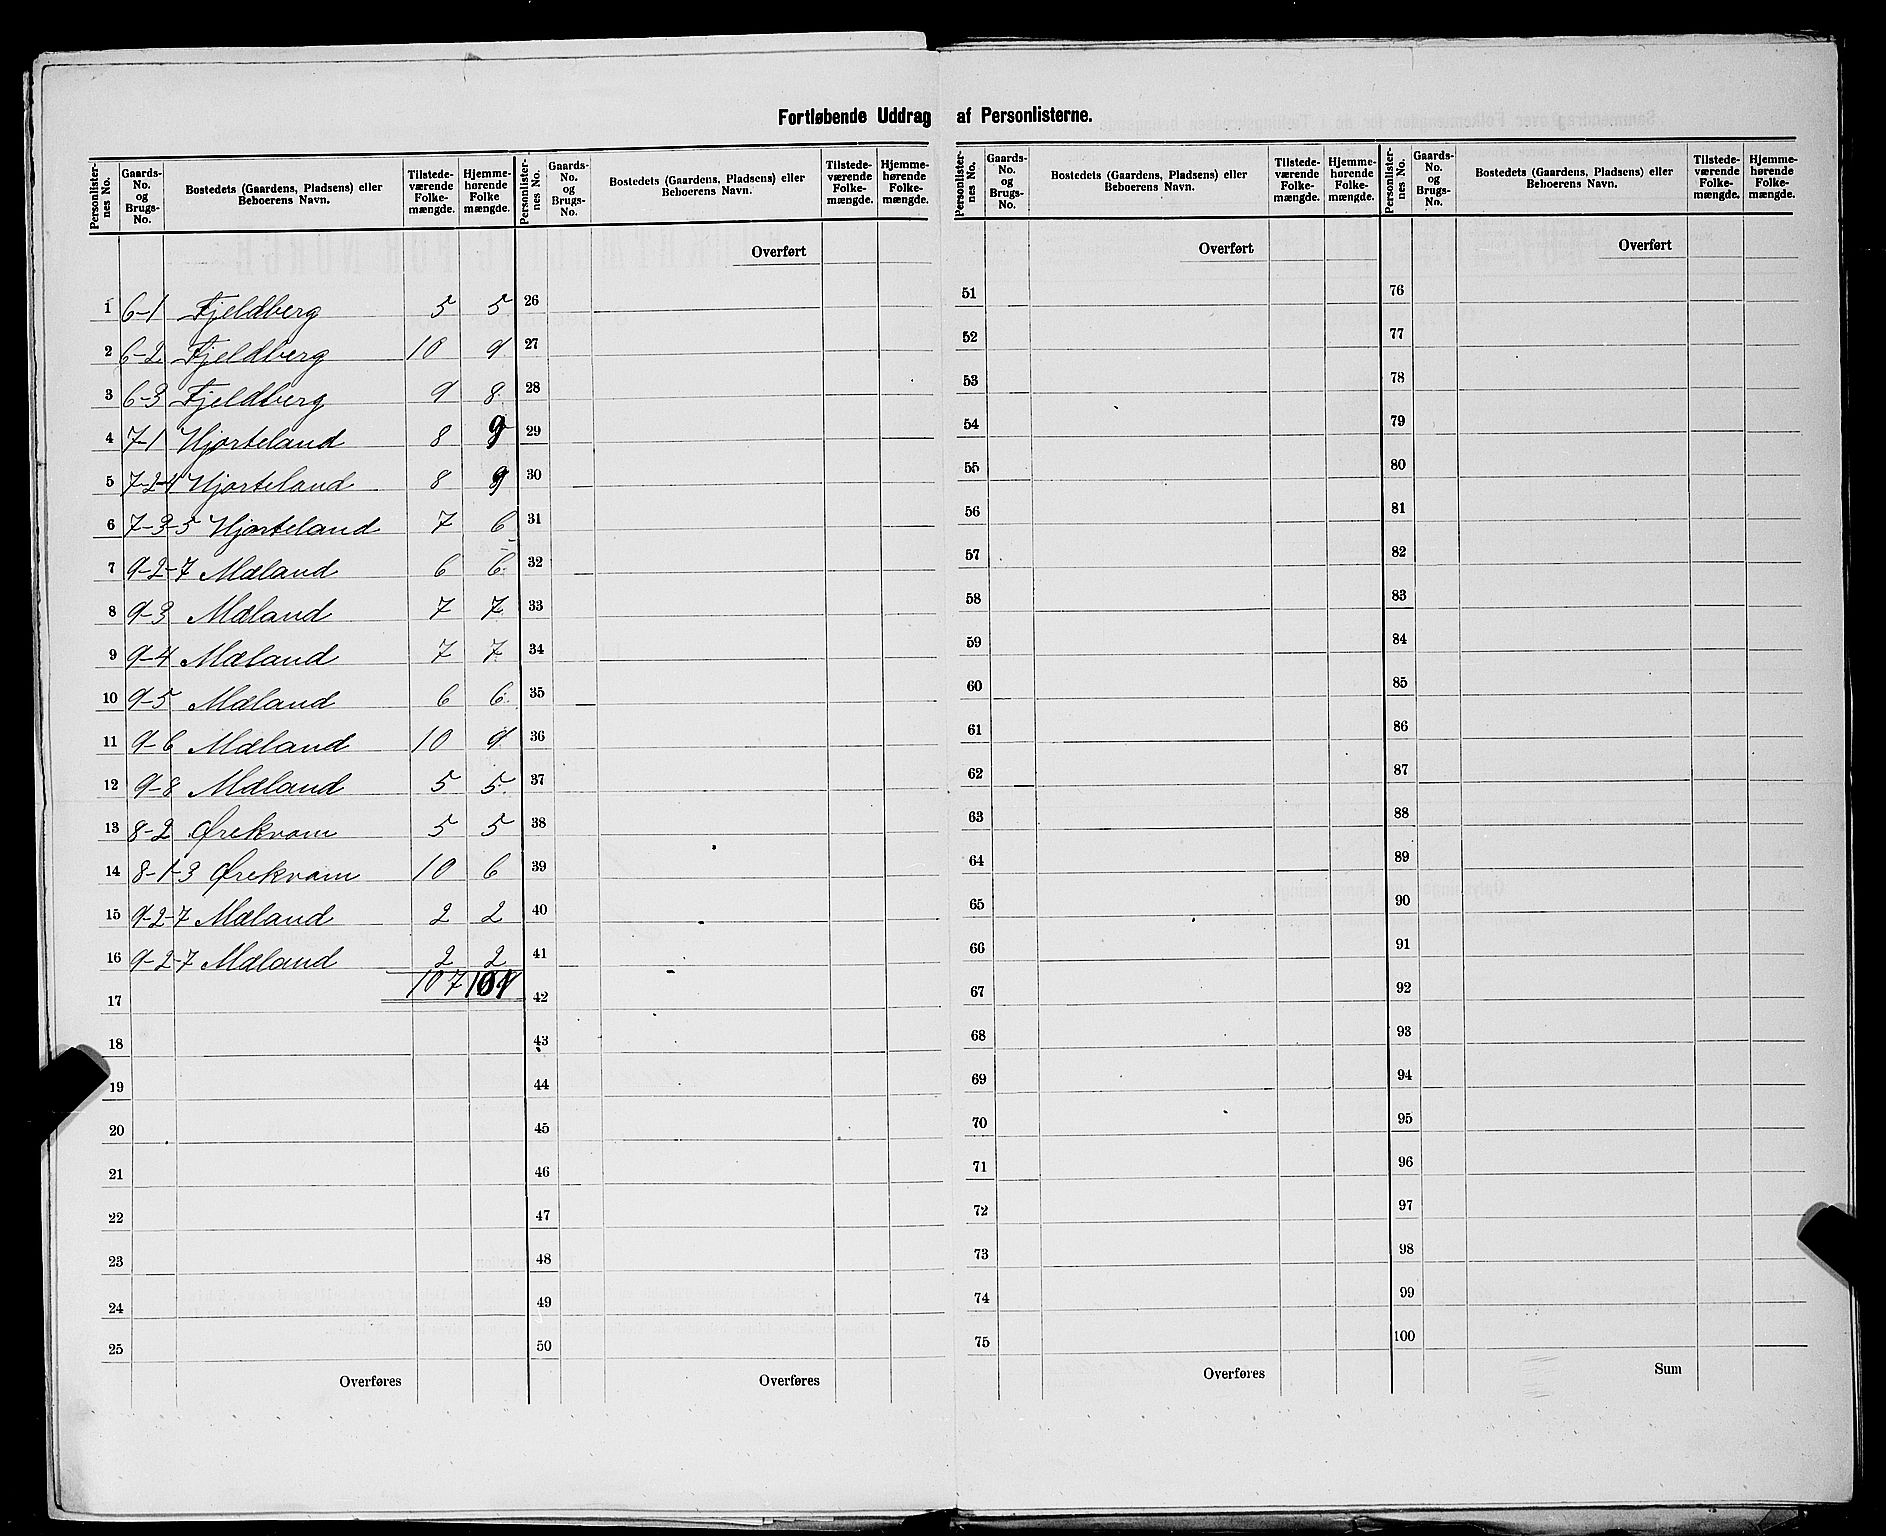 Fortløbende Uddrag af Personlisterne.
Personlister-nes No. Gaards-No. og Brugs-No. Bostedets (Gaardens, Pladsens) eller Beboerens Navn. Tilstede-værende Folke-mængde. Hjemme-hørende Folke mængde.
1 6-1 Fjeldberg 5 5
2 6-2 Fjeldberg 10 9
3 6-3 Fjeldberg 9 8
4 7-1 Hjorteland 8 9
5 7-2-4 Hjorteland 8 9
6 7-3-5 Hjorteland 7 6
7 9-2-7 Mæland 6 6
8 9-3 Mæland 7 7
9 9-4 Mæland 7 7
10 9-5 Mæland 6 6
11 9-6 Mæland 10 9
12 9-8 Mæland 5 5
13 8-2 Ørekvam 5 5
14 8-1-3 Ørekvam 10 6
15 9-2-7 Mæland 2 2
16 9-2-7 Mæland 2 2
17 107 101
18
19
20
21
22
23
24
25
Overføres
Personlister-nes No. Gaards-No. og Brugs-No. Bostedets (Gaardens, Pladsens) eller Beboerens Navn. Tilstede-værende Folke-mængde. Hjemme-hørende Folke-mængde.
Overført
26
27
28
29
30
31
32
33
34
35
36
37
38
39
40
41
42
43
44
45
46
47
48
49
50
Overføres
Personlister-nes No. Gaards-No. og Brugs-No. Bostedets (Gaardens, Pladsens) eller Beboerens Navn. Tilstede-værende Folke-mængde. Hjemme-hørende Folke-mængde.
Overført
51
52
53
54
55
56
57
58
59
60
61
62
63
64
65
66
67
68
69
70
71
72
73
74
75
Overføres
Personlister-nes No. Gaards-No. og Brugs-No. Bostedets (Gaardens, Pladsens) eller Beboerens Navn. Tilstede-værende Folke-mængde. Hjemme-hørende Folke-mængde.
Overført
76
77
78
79
80
81
82
83
84
85
86
87
88
89
90
91
92
93
94
95
96
97
98
99
100
Sum